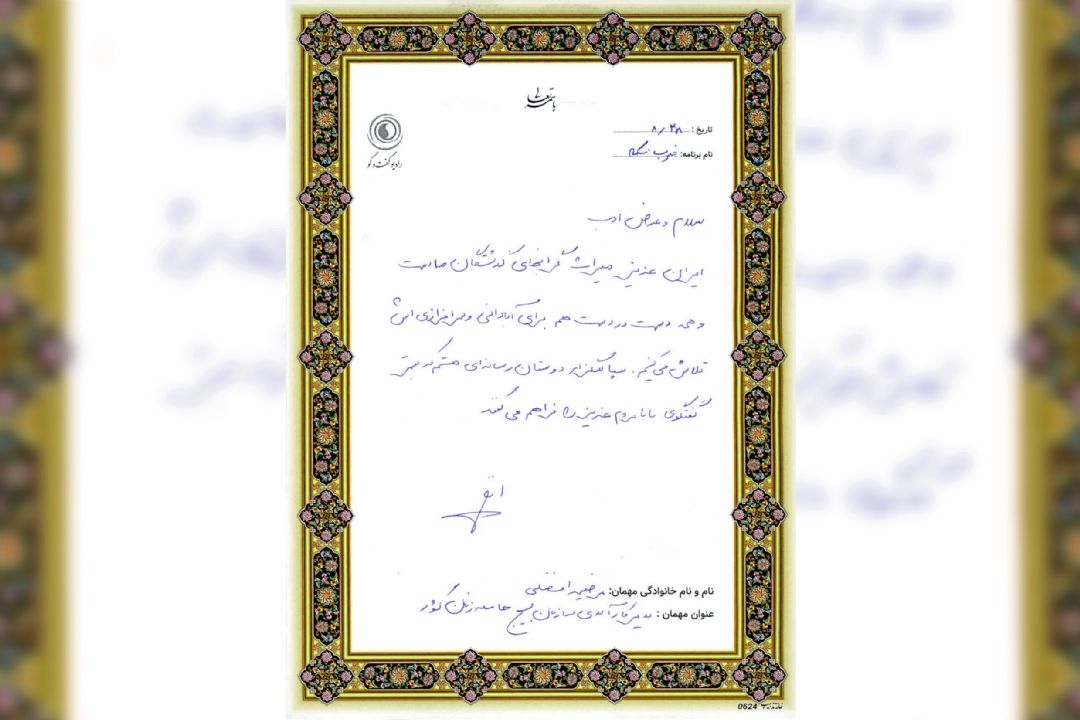 باسمه تعالی
رادیو گفت و گو
تاریخ: ۸/۲۸
نام برنامه:
سلام و عرض ادب
ایران عزیز میراث گرانبهای گذشتگان ماست
و همه دست در دست هم برای آبادانی و سرافرازی اش
تلاش می‌کنیم. سپاسگزار دوستان رسانه‌ای هستم که بستر
گفتگوی ما با مردم عزیز را فراهم می‌کنند
نام و نام خانوادگی مهمان: مرضیه افضلی
عنوان مهمان: سازمان بسیج جامعه زنان کشور
0624